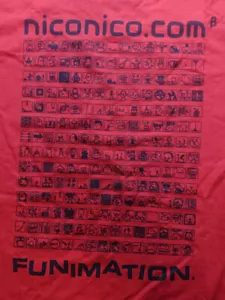 niconico.com β
FUNIMATION.